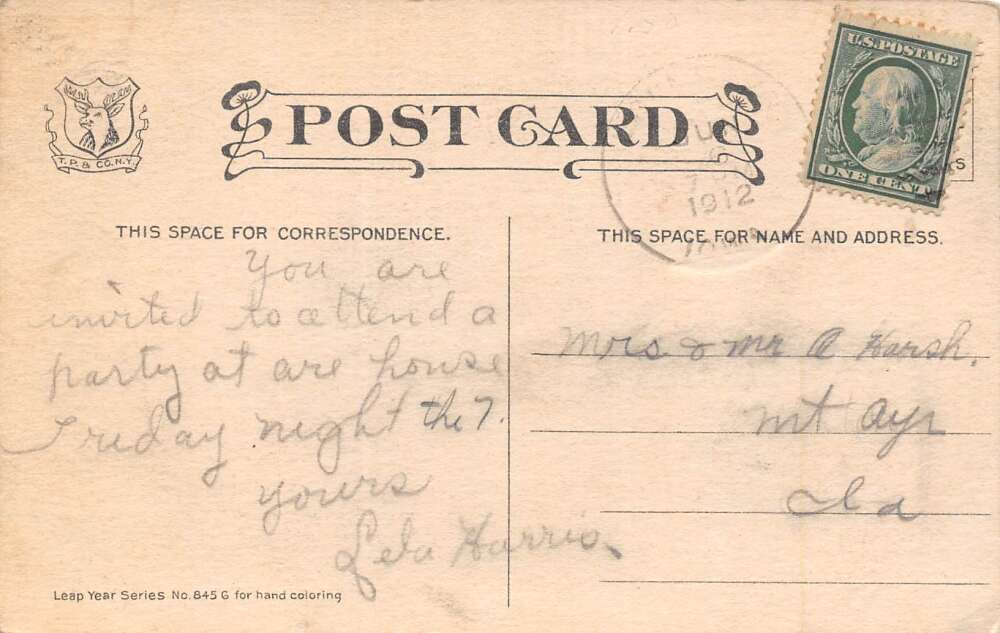 T. P. & CO. N.Y.
POST CARD
U.S. POSTAGE
ONE CENT
1912
THIS SPACE FOR CORRESPONDENCE.
THIS SPACE FOR NAME AND ADDRESS.
You are
invited to attend a
party at are house
Friday night the 7.
yours
Lela Harris.
Mrs & mr A Harsh.
mt ayr
Ia
Leap Year Series No. 845 G for hand coloring